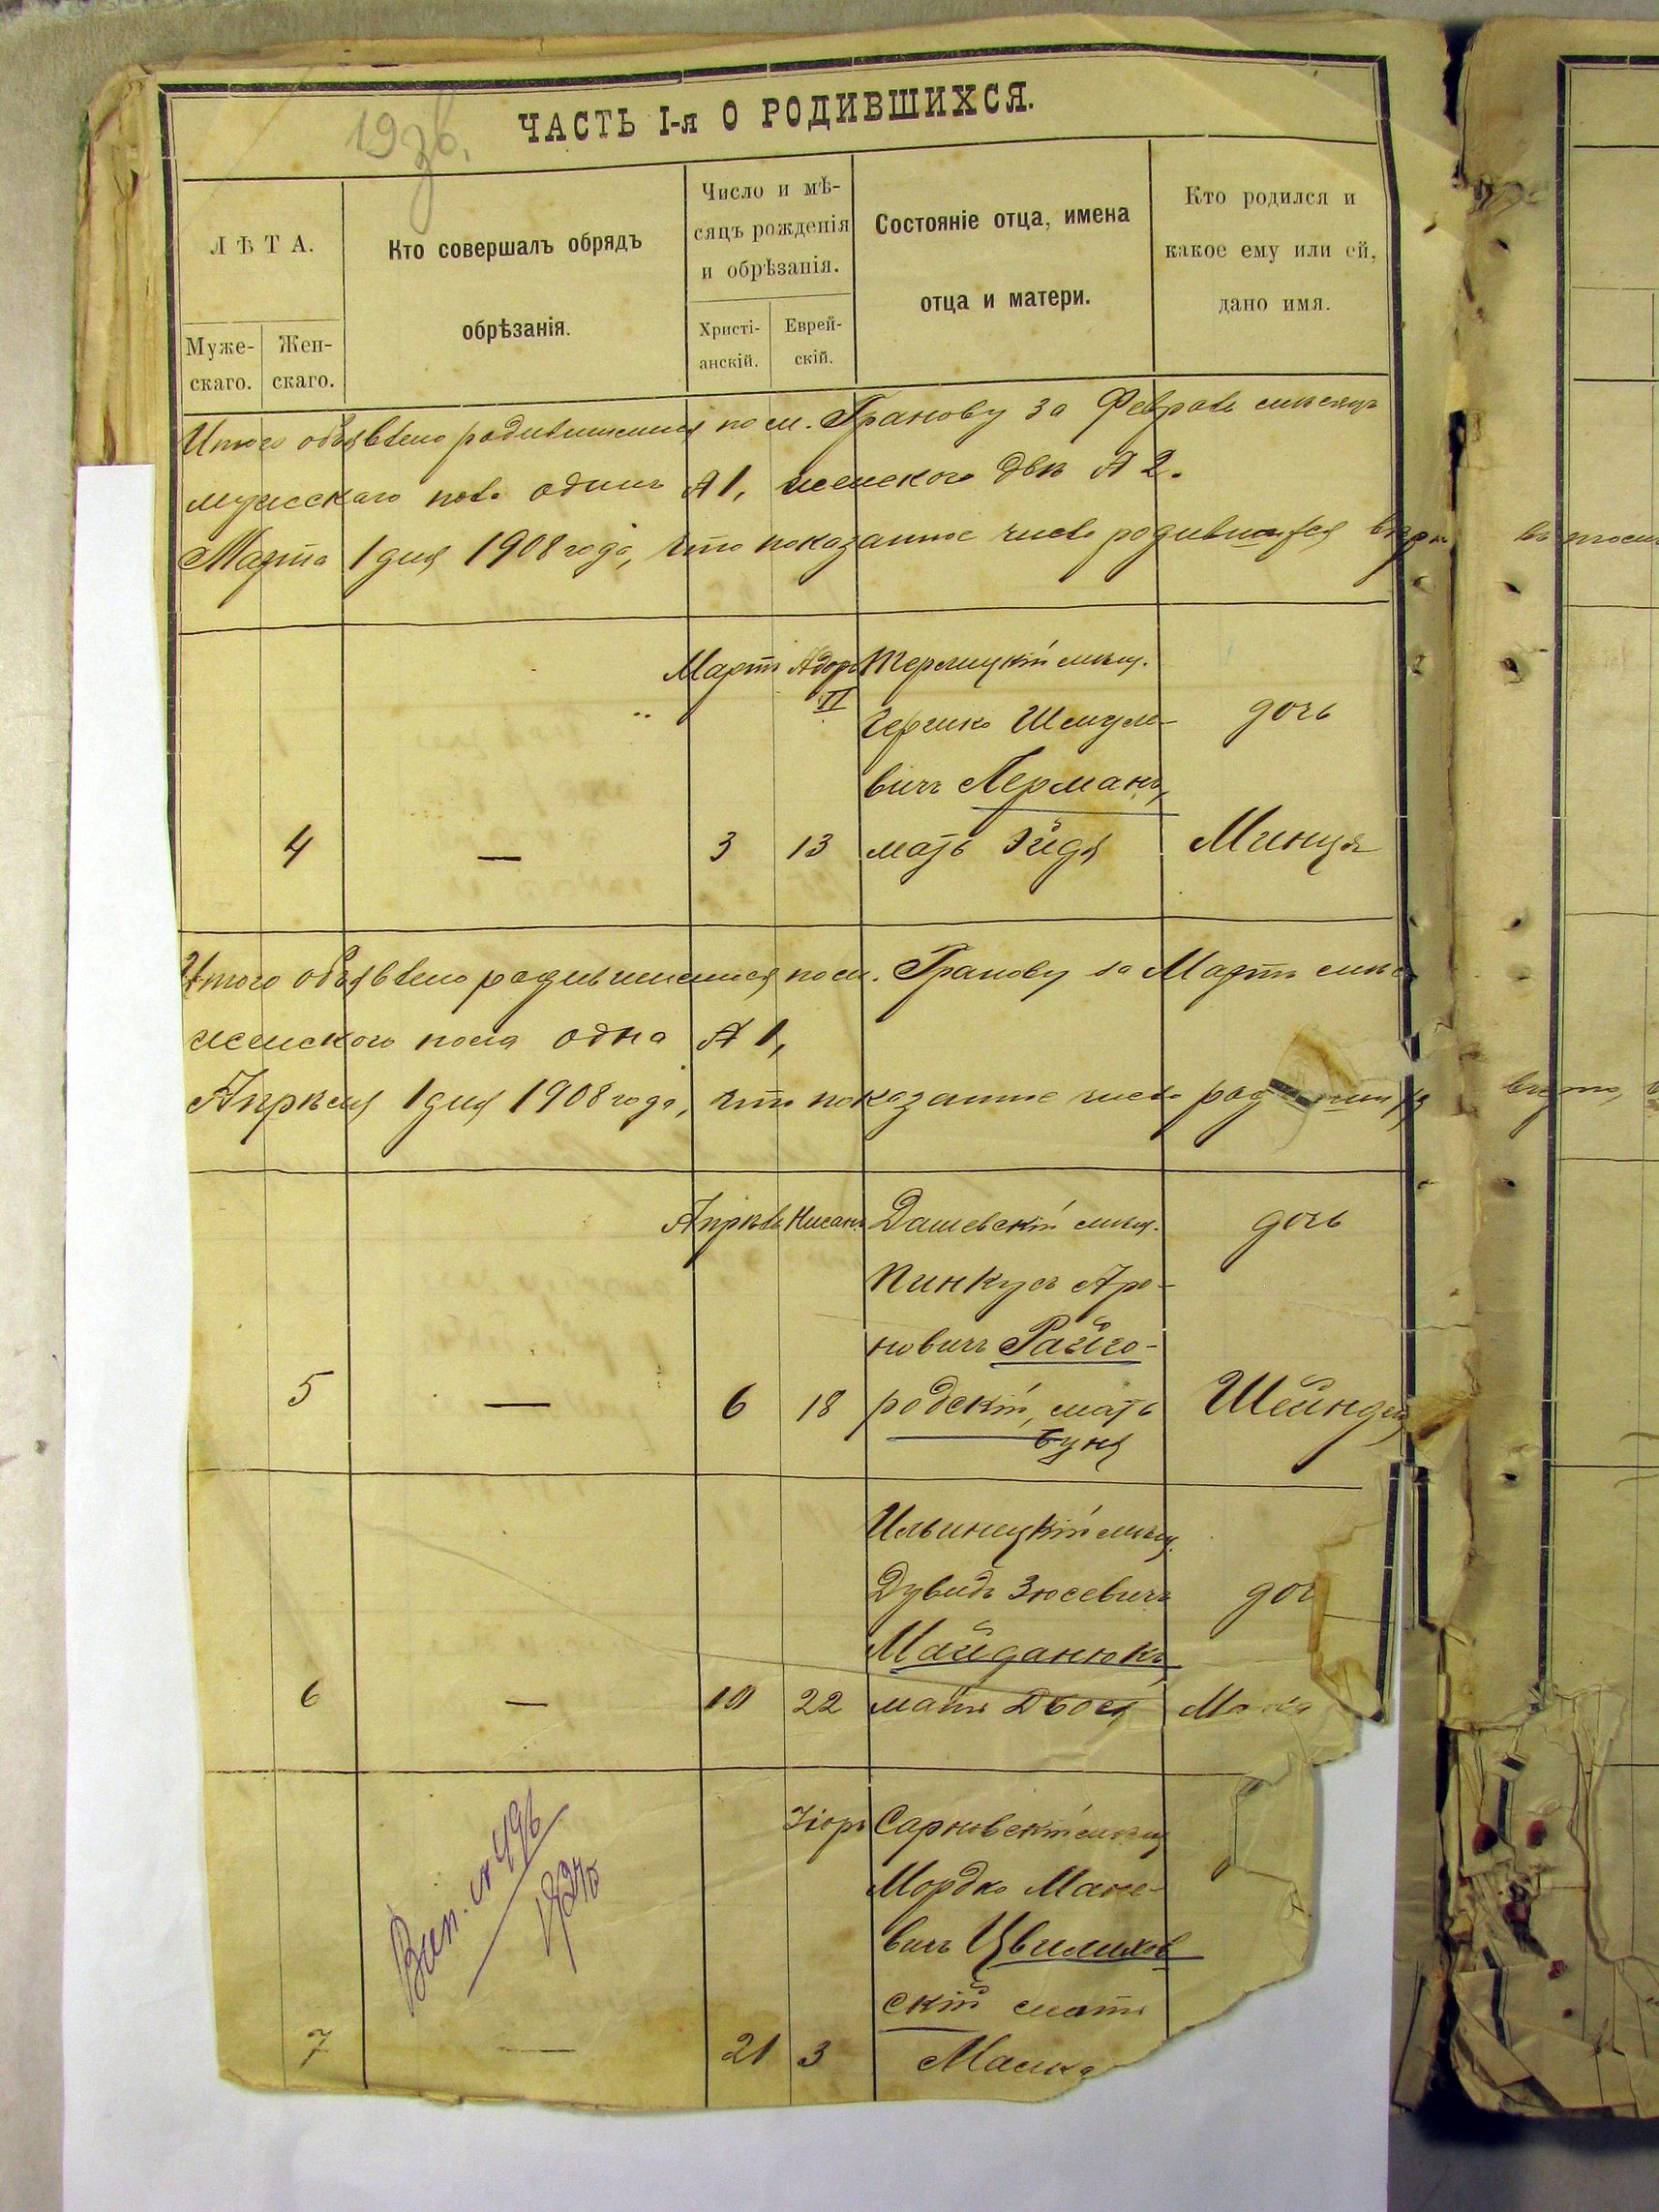 193б.
ЧАСТЬ I-я О РОДИВШИХСЯ.
ЛѢТА.
Муже-
скаго.
Жен-
скаго.
Кто совершалъ обрядъ
обрѣзанія.
Число и мѣ-
сяцъ рожденія
и обрѣзанія.
Христі-
анскій.
Еврей-
скій.
Состояніе отца, имена
отца и матери.
Кто родился и
какое ему или ей,
дано имя.
Итого объявлено родившимися по м. Гранову за Февраль мѣсяцъ
мужескаго пола одинъ № 1, женского двѣ № 2.
Марта 1 дня 1908 года, что показанное число родившихся вѣрн
Мартъ Адоръ Терлицкій мѣщ.
II
Гершко Шмуле- дочь
вичъ Лерманъ,
4 — 3 13 мать Эйдя Минця
Итого объявлено родившимися по м. Гранову за Мартъ мѣс
женского пола одна № 1,
Апрѣля 1 дня 1908 года, что показанное число род
Апрѣль Нисанъ Дашевскій мѣщ. дочь
Пинкусъ Аро-
новичъ Райго-
5 — 6 18 родскій, мать Шейндля
Буня
Ильинецкій мѣщ.
Дувидъ Зюсевичъ доч
Майданюкъ,
6 — 10 22 мать Двося
Іоръ Сарновскій мѣщ
Мордко Мане-
вичъ Цвилихов
скій мать
7 — 21 3 Малка
Вып. № 496